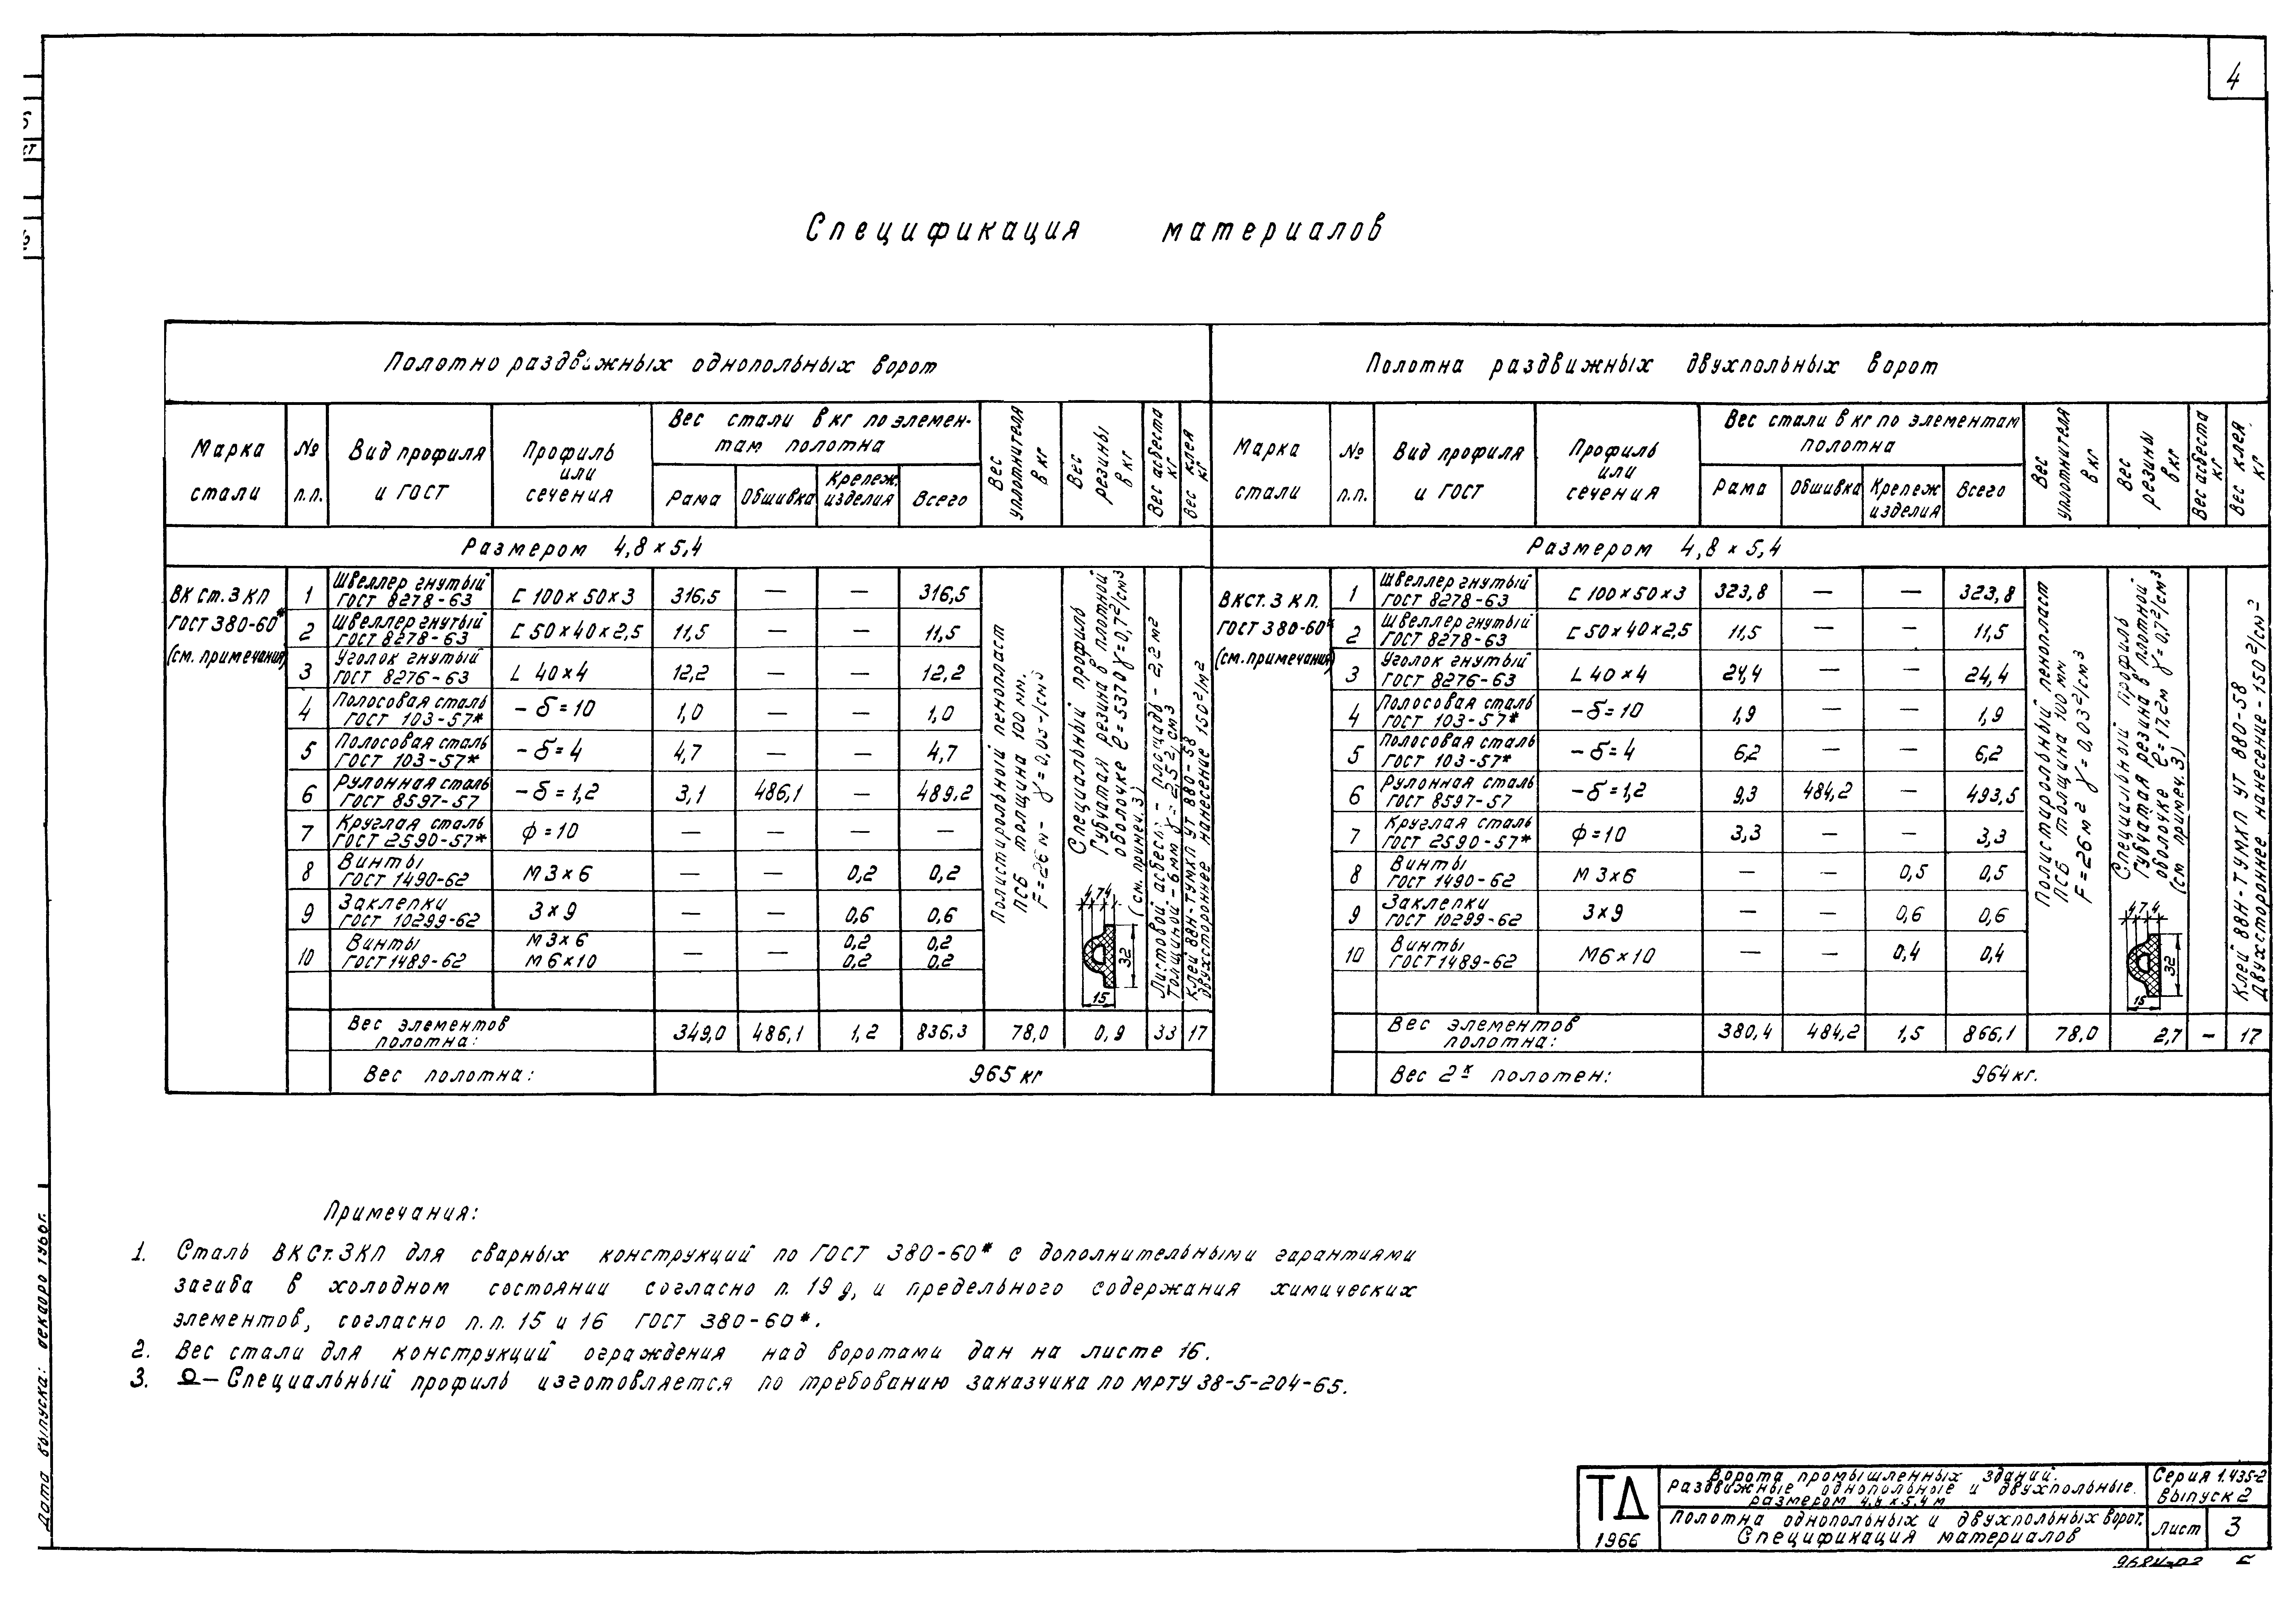 4
Спецификация материалов
Полотно раздвижных однопольных ворот
Марка стали
№ п.п.
Вид профиля и ГОСТ
Профиль или сечения
Вес стали в кг по элементам полотна
Рама Обшивка Крепеж. изделия Всего
Вес уплотнителя в кг
Вес резины в кг
Вес асбеста кг
Вес клея кг
Размером 4,8 × 5,4
ВК ст. 3 кп
ГОСТ 380-60*
(см. примечания)
1 Швеллер гнутый ГОСТ 8278-63 [ 100 × 50 × 3 316,5 — — 316,5
2 Швеллер гнутый ГОСТ 8278-63 [ 50 × 40 × 2,5 11,5 — — 11,5
3 Уголок гнутый ГОСТ 8276-63 L 40 × 4 12,2 — — 12,2
4 Полосовая сталь ГОСТ 103-57* - δ = 10 1,0 — — 1,0
5 Полосовая сталь ГОСТ 103-57* - δ = 4 4,7 — — 4,7
6 Рулонная сталь ГОСТ 8597-57 - δ = 1,2 3,1 486,1 — 489,2
7 Круглая сталь ГОСТ 2590-57* ф = 10 — — — —
8 Винты ГОСТ 1490-62 М 3 × 6 — — 0,2 0,2
9 Заклепки ГОСТ 10299-62 3 × 9 — — 0,6 0,6
10 Винты ГОСТ 1489-62 М 3 × 6 М 6 × 10 — — 0,2 0,2 0,2 0,2
Полистирольный пенопласт
ПСБ толщина 100 мм.
Специальный профиль
Губчатая резина в плотной
оболочке ℓ = 5370 γ = 0,7 г/см³
(см. примеч. 3)
4 7 4
32
15
Листовой асбест - площадь - 2,2 м²
Толщиной - 6 мм γ = 2,5 г/см³
Клей 88Н - ТУМХП УТ 880-58
двухстороннее нанесение 150 г/м²
Вес элементов полотна: 349,0 486,1 1,2 836,3 78,0 0,9 33 17
Вес полотна: 965 кг
Полотна раздвижных двухпольных ворот
Марка стали
№ п.п.
Вид профиля и ГОСТ
Профиль или сечения
Вес стали в кг по элементам полотна
Рама Обшивка Крепеж изделия Всего
Вес уплотнителя в кг
Вес резины в кг
Вес асбеста кг
Вес клея кг
Размером 4,8 × 5,4
ВК ст. 3 кп.
ГОСТ 380-60*
(см. примечания)
1 Швеллер гнутый ГОСТ 8278-63 [ 100 × 50 × 3 323,8 — — 323,8
2 Швеллер гнутый ГОСТ 8278-63 [ 50 × 40 × 2,5 11,5 — — 11,5
3 Уголок гнутый ГОСТ 8276-63 L 40 × 4 24,4 — — 24,4
4 Полосовая сталь ГОСТ 103-57* - δ = 10 1,9 — — 1,9
5 Полосовая сталь ГОСТ 103-57* - δ = 4 6,2 — — 6,2
6 Рулонная сталь ГОСТ 8597-57 - δ = 1,2 9,3 484,2 — 493,5
7 Круглая сталь ГОСТ 2590-57* ф = 10 3,3 — — 3,3
8 Винты ГОСТ 1490-62 М 3 × 6 — — 0,5 0,5
9 Заклепки ГОСТ 10299-62 3 × 9 — — 0,6 0,6
10 Винты ГОСТ 1489-62 М 6 × 10 — — 0,4 0,4
Полистирольный пенопласт
ПСБ толщина 100 мм
F = 26 м² γ = 0,03 г/см³
Специальный профиль
Губчатая резина в плотной
оболочке ℓ = 17,2 м γ = 0,7 г/см³
(см примеч. 3)
4 7 4
32
15
Клей 88Н - ТУМХП УТ 880-58
Двухстороннее нанесение - 150 г/см²
Вес элементов полотна: 380,4 484,2 1,5 866,1 78,0 2,7 — 17
Вес 2х полотен: 964 кг.
Примечания:
1. Сталь ВК Ст. 3 КП для сварных конструкций по ГОСТ 380-60* с дополнительными гарантиями
загиба в холодном состоянии согласно п. 19 д, и предельного содержания химических
элементов, согласно п.п. 15 и 16 ГОСТ 380-60*.
2. Вес стали для конструкций ограждения над воротами дан на листе 16.
3. — Специальный профиль изготовляется по требованию заказчика по МРТУ 38-5-204-65.
Дата выпуска: декабрь 1966г.
ТД
1966
Ворота промышленных зданий.
Раздвижные однопольные и двухпольные.
размером 4,8 × 5,4 м
Серия 1.435-2
Выпуск 2
Полотна однопольных и двухпольных ворот.
Спецификация материалов
Лист 3